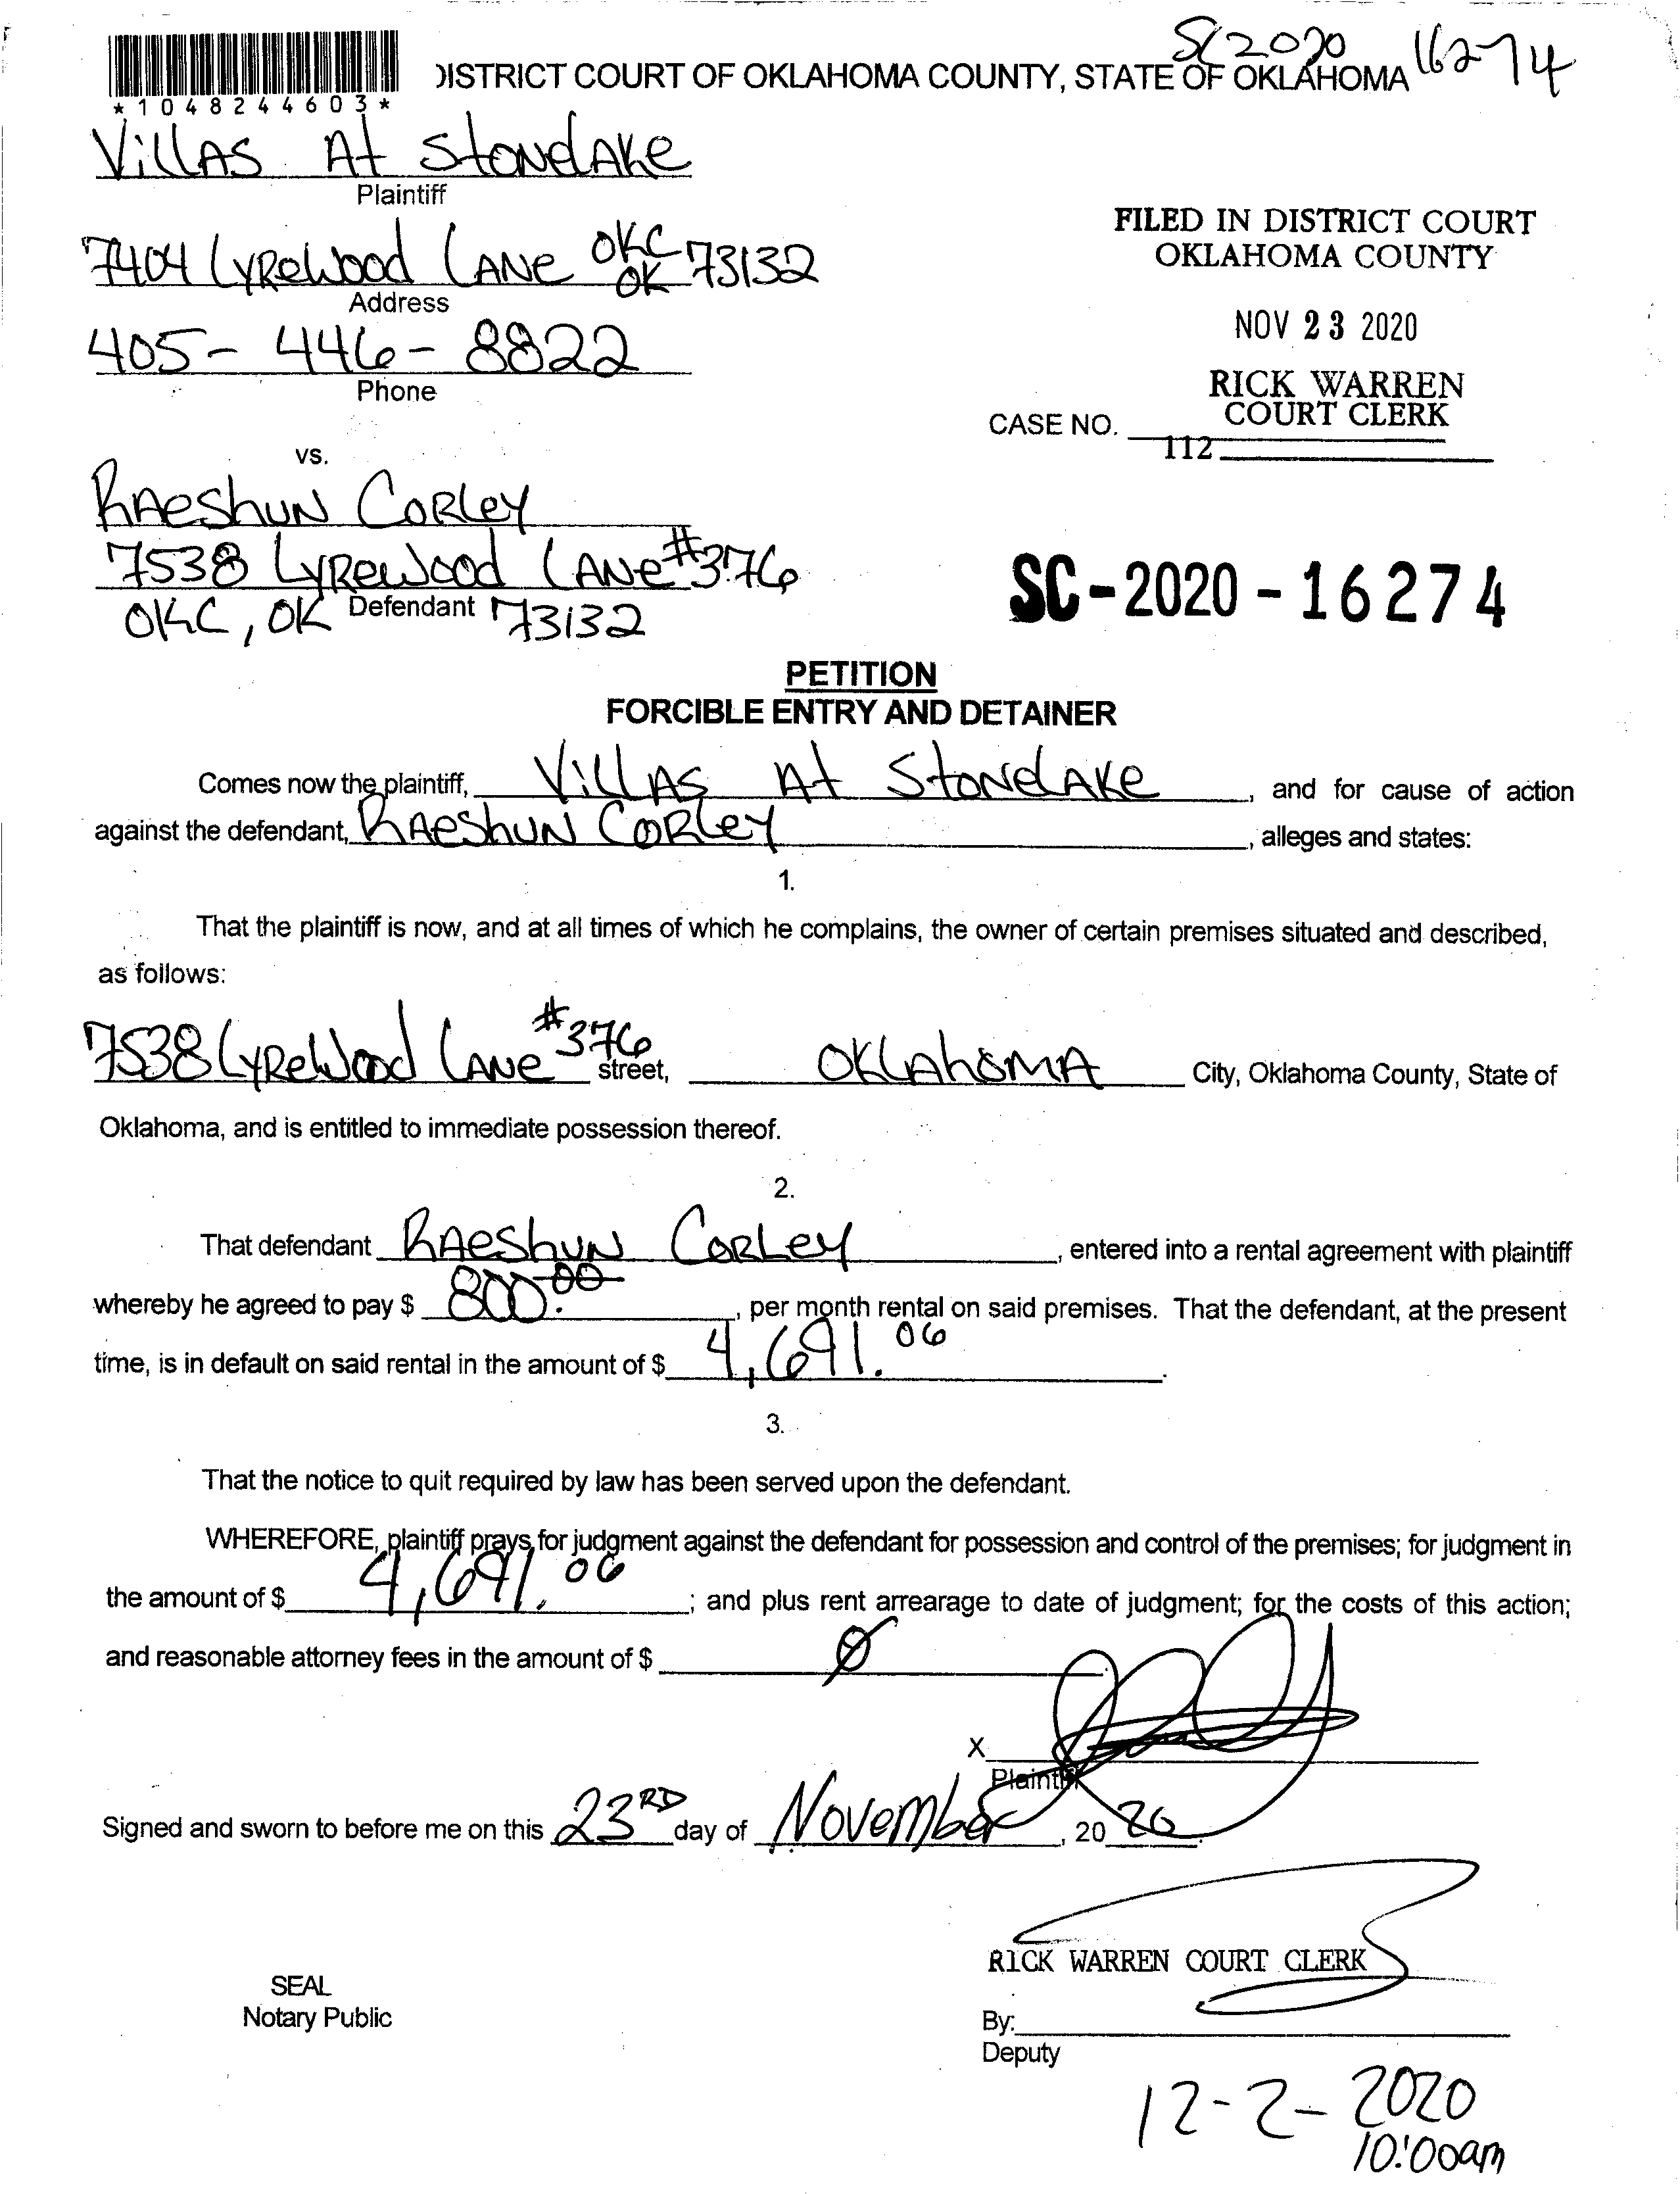 SC2020 16274
*1048244603*
DISTRICT COURT OF OKLAHOMA COUNTY, STATE OF OKLAHOMA
Villas At Stonelake
Plaintiff
7404 Lyrewood Lane OKC OK 73132
Address
405-446-8822
Phone
FILED IN DISTRICT COURT
OKLAHOMA COUNTY
NOV 23 2020
RICK WARREN
COURT CLERK
CASE NO.
112
vs.
Raeshun Corley
7538 Lyrewood Lane #376
OKC, OK 73132
Defendant
SC-2020-16274
PETITION
FORCIBLE ENTRY AND DETAINER
Comes now the plaintiff, Villas At Stonelake, and for cause of action
against the defendant, Raeshun Corley, alleges and states:
1.
That the plaintiff is now, and at all times of which he complains, the owner of certain premises situated and described,
as follows:
7538 Lyrewood Lane #376 street, Oklahoma City, Oklahoma County, State of
Oklahoma, and is entitled to immediate possession thereof.
2.
That defendant Raeshun Corley, entered into a rental agreement with plaintiff
whereby he agreed to pay $ 800.00, per month rental on said premises. That the defendant, at the present
time, is in default on said rental in the amount of $ 4,691.06.
3.
That the notice to quit required by law has been served upon the defendant.
WHEREFORE, plaintiff prays for judgment against the defendant for possession and control of the premises; for judgment in
the amount of $ 4,691.06; and plus rent arrearage to date of judgment; for the costs of this action;
and reasonable attorney fees in the amount of $ 0.
X
Plaintiff
Signed and sworn to before me on this 23RD day of November, 2020.
RICK WARREN COURT CLERK
SEAL
Notary Public
By:
Deputy
12-2-2020
10:00am